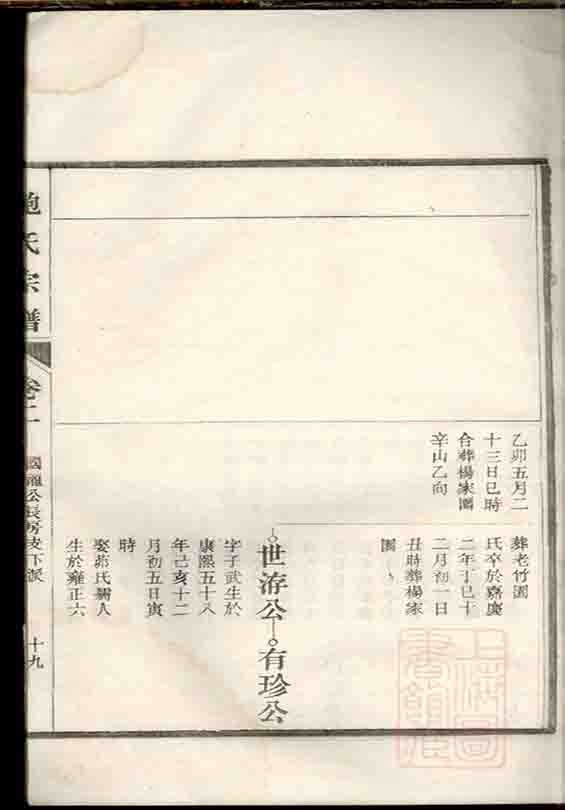 乙卯五月二
十三日巳時
合葬楊家園
辛山乙向
葬老竹園
氏卒於嘉慶
二年丁巳十
二月初一日
丑時葬楊家
園
世游公 有珍公
字子武生於
康熙五十八
年己亥十二
月初五日寅
時
娶茆氏孺人
生於雍正六
鮑氏宗譜
卷二
國龍公長房支下派
十九
上海圖
書館藏